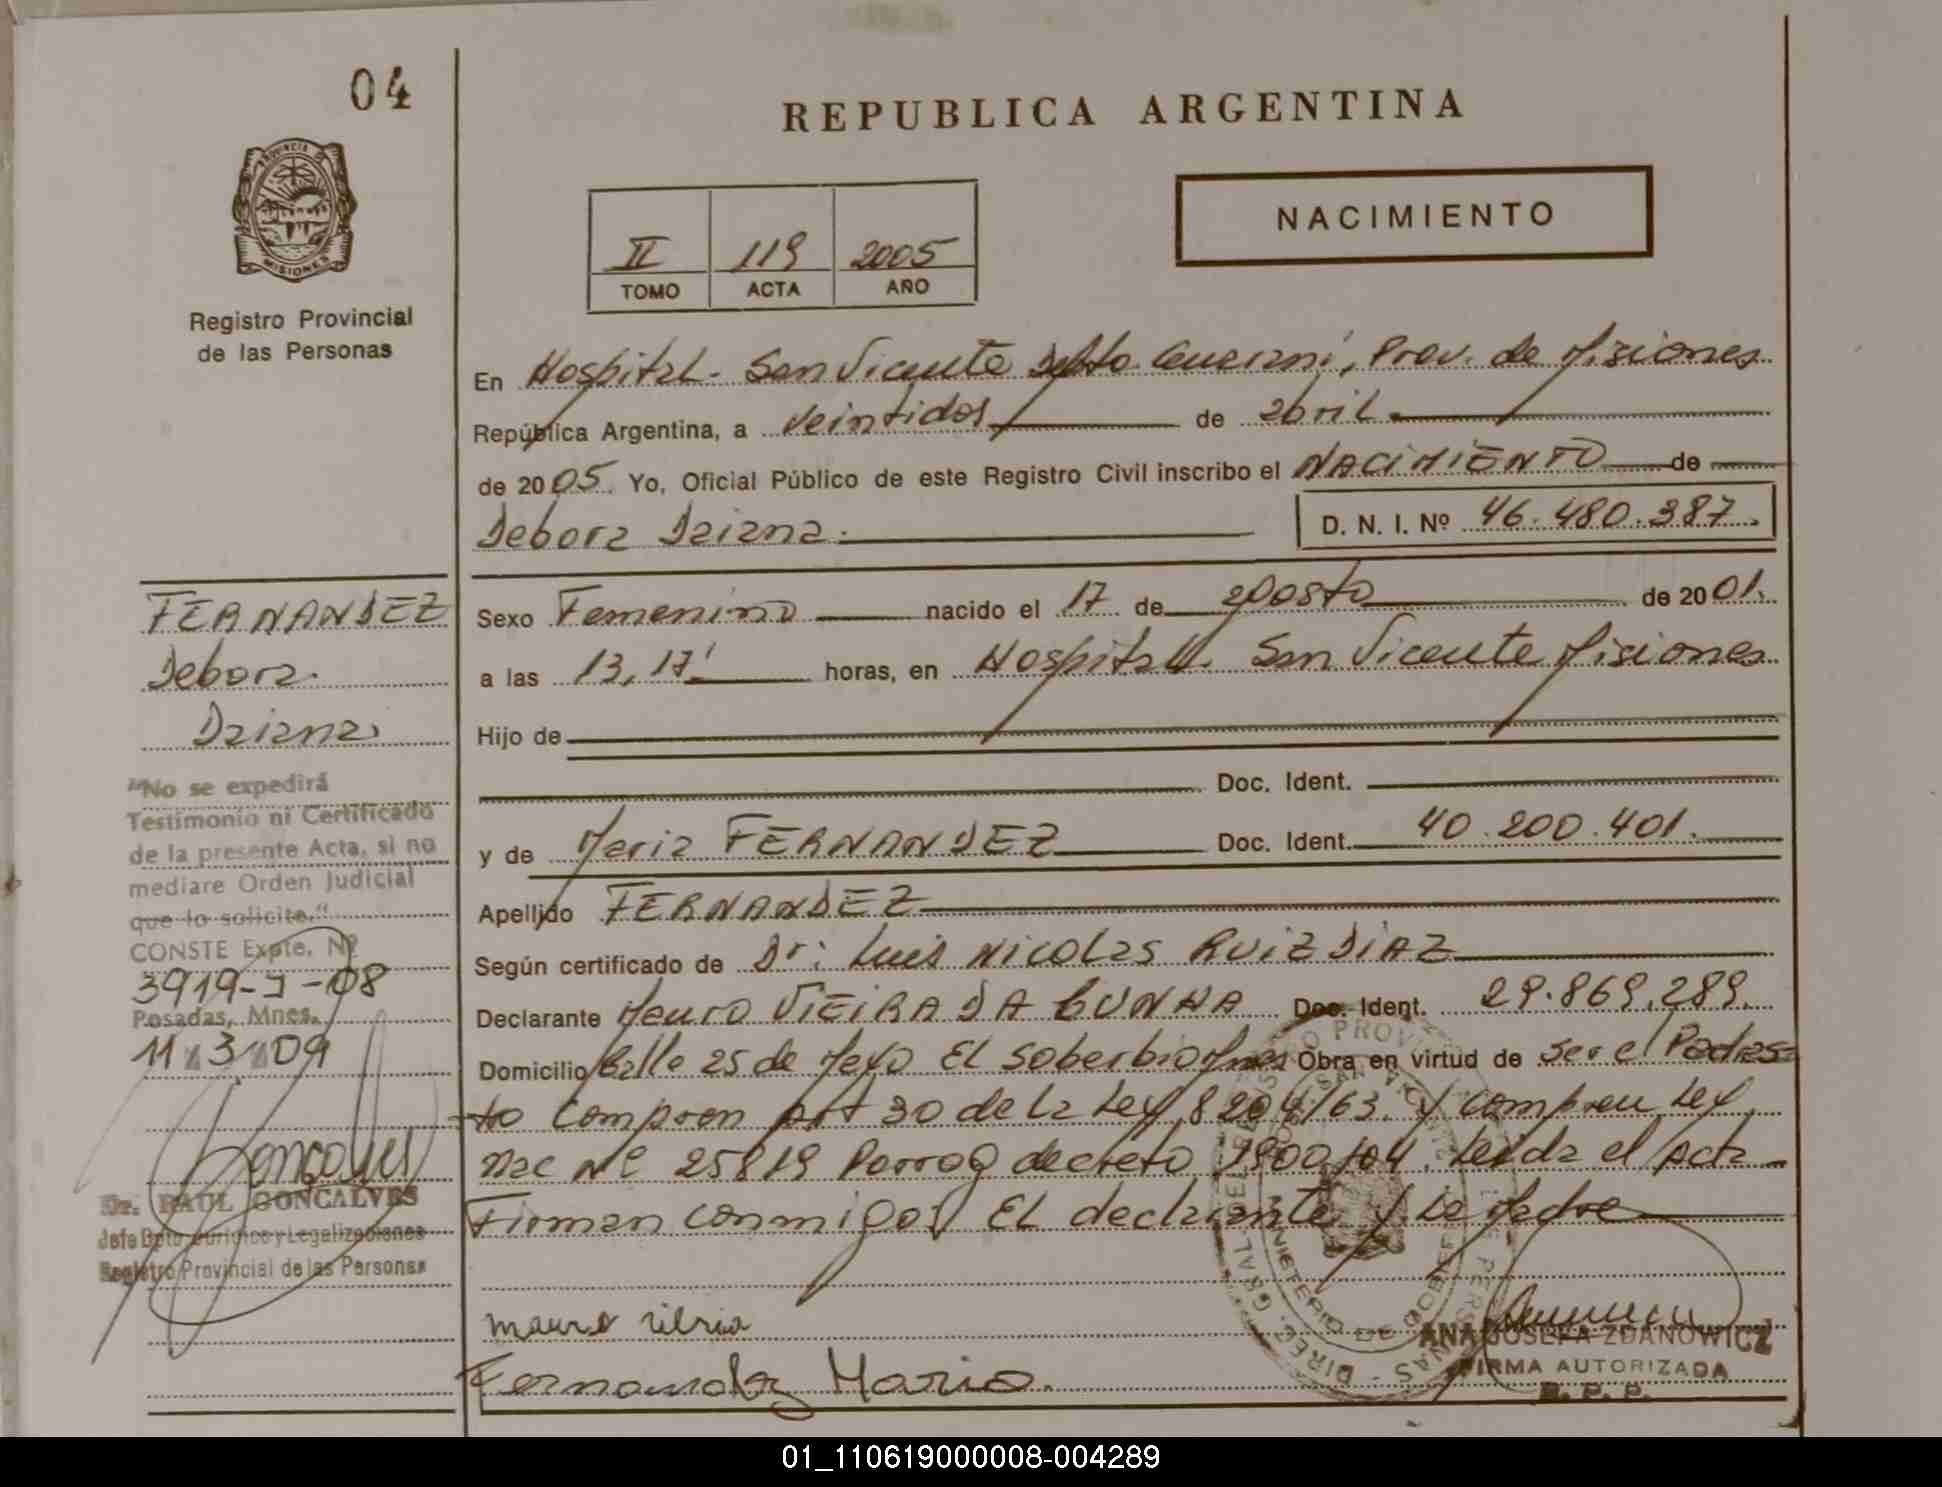 04
REPUBLICA ARGENTINA
PROVINCIA DE
MISIONES
Registro Provincial
de las Personas
NACIMIENTO
II 119 2005
TOMO ACTA AÑO
En Hospital. San Vicente Dpto. Guarani, Prov. de Misiones
República Argentina, a veintidos de abril
de 2005. Yo, Oficial Público de este Registro Civil inscribo el NACIMIENTO de
Debora Daiana. D. N. I. Nº 46.480.387.
FERNANDEZ
Debora
Daiana
Sexo Femenino nacido el 17 de agosto de 2001.
a las 13,17' horas, en Hospital. San Vicente Misiones
Hijo de
Doc. Ident.
y de Maria FERNANDEZ Doc. Ident. 40.200.401.
Apellido FERNANDEZ
Según certificado de Dr: Luis Nicolas RUIZ DIAZ
Declarante Mauro VIEIRA DA CUNHA Doc. Ident. 29.869.289.
Domicilio Calle 25 de Mayo El Soberbio Mnes Obra en virtud de ser el Padras-
to Compren art 30 de la Ley 8204/63. y compren Ley
Nac Nº 25819 Porrog decreto 1900/04. Leida el Acta
Firman conmigo El declarante y La Madre
"No se expedirá
Testimonio ni Certificado
de la presente Acta, si no
mediare Orden Judicial
que lo solicite."
CONSTE Expte. Nº
3919-J-08
Posadas, Mnes.
11 3 09
Goncalves
Dr. RAUL GONCALVES
Jefe Dpto. Jurídico y Legalizaciones
Registro Provincial de las Personas
Fernandez Maria.
ANA JOSEFA ZDANOWICZ
FIRMA AUTORIZADA
R. P. P.
01_110619000008-004289